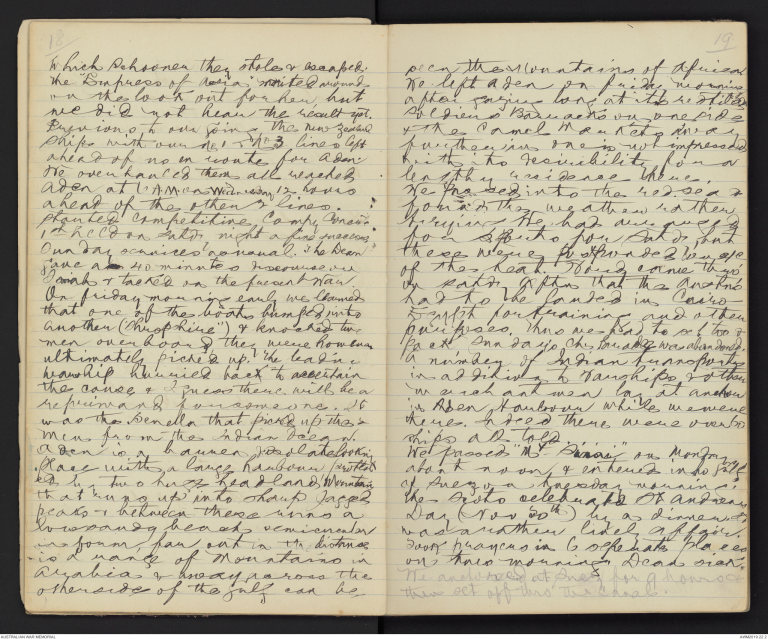 18
which schooner they stole & escaped.
the "Empress of Asia" waited around
on the look out for her, but
we did not hear the result yet.
Previous to our going the New Zealand
ships with our No 1 & No 3 lines left
ahead of us en route for Aden.
We overhauled them all reached
Aden at 1 AM on Wednesday 12 hours
ahead of the other 2 lines.
Started Competitive Comp. Concerts
1st held on Satdy night a fine success
Sunday services as usual. The Dean
gave a 40 minutes discourse on
& talked on the present War
On friday mourning early we learned
that one of the boats bumped into
another ("Shropshire") & knocked two
men overboard they were however
ultimately picked up. The leading
warship hurried back to ascertain
the cause & I guess there will be a
reprimand for someone. It
was the Benella that picked up the 2
men from the Indian Ocean.
Aden is a barren desolate looking
place with a large harbour protect
ed by two huge headland Mountains
that "runs up" into sharp Jagged
peaks & between these runs a
low sandy beach semicircular
in form, far out in the distance
is a range of Mountains in
Arabia & away across the
otherside of the gulf can be
19
seen the Mountains of Africa
We left Aden on friday mourning
after gazing long at its red tiled
Soldiers Barracks on one side
& the Camel Market away
further in one is not impressed
with its desirability for a
lengthy residence there.
We passed into the red sea &
found the weather rather
trying. We had arranged
for sports for Satdy but
these were postponed because
of the heat. Word came thro
on Satdy aftn that the Austns
had to be landed in Cairo
Egypt for training and other
purposes. Thus we had to set to &
pack Sundays Ch. parade was abandoned.
A number of Indian transports
in addition to Warships & other
merchant men lay at anchor
in Aden Harbour while we were
there. Indeed there were over 50
ships all told.
We passed "Mt. Sinai" on Monday
about noon & entered into Gulf
of Suez on Tuesday mourning.
the Scots celebrated St Andrews
Day (Nov 30th) by a dinner it
was a rather lively affair.
Took prayers in 6 separate places
on this mourning Dean sick.
We anchored at Suez for 9 hours &
then set off thro' the Canal.
AUSTRALIAN WAR MEMORIAL
AWM2019.22.2